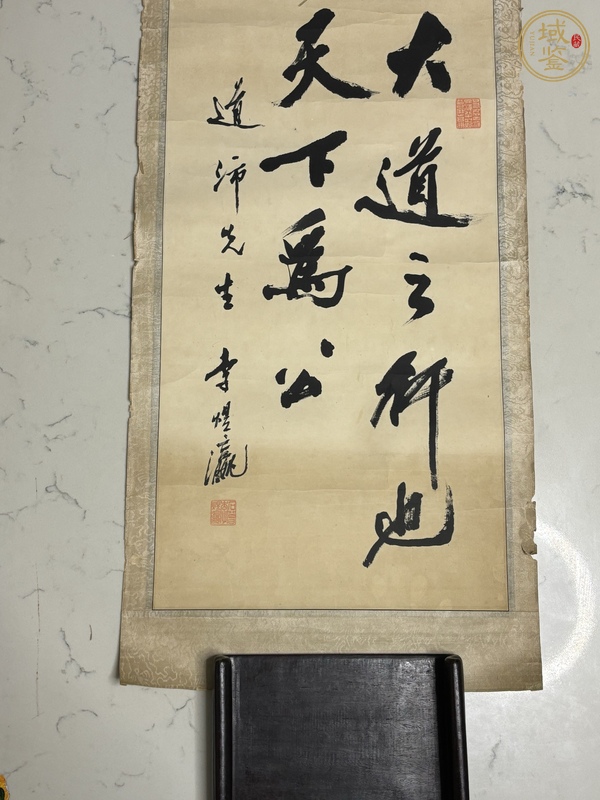 大道之行也
天下爲公
道沛先生 李煜瀛
域鉴